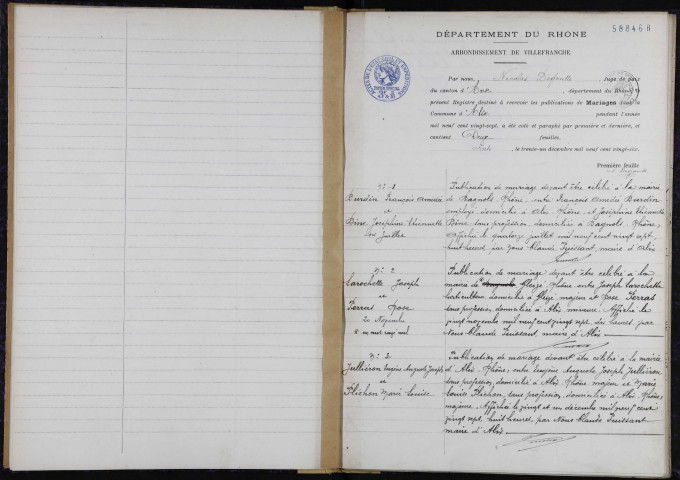 58846 R
DÉPARTEMENT DU RHONE
ARRONDISSEMENT DE VILLEFRANCHE
Par nous, Nicolas, Juge de paix
du canton d'Anse, département du Rhône, le
présent Registre destiné à recevoir les publications de Mariages dans la
Commune d'Alix pendant l'année
mil neuf cent vingt-sept, a été coté et paraphé par première et dernière, et
contient feuilles.
, le trente-un décembre mil neuf cent vingt-six.
Première feuille
N° 1
Burdin François Amédée
et
Bine Joséphine Thiennette
Juillet
Publication de mariage devant être célébré à la mairie
de Bagnols, Rhône, entre François Amédée Burdin
employé domicilié à Alix, Rhône, et Joséphine Thiennette
Bine sans profession, domiciliée à Bagnols, Rhône,
Affiché le quatorze juillet mil neuf cent vingt sept,
huit heures, par Nous Claude Puissant, maire d'Alix
N° 2
Larochette Joseph
et
Ferras Rose
20 Novembre
un mot rayé nul
Publication de mariage devant être célébré à la
mairie de Bagnols, Rhône entre Joseph Larochette
domicilié à majeur et Rose Ferras
sans profession, domiciliée à Alix mineure. Affiché le
vingt novembre mil neuf cent vingt sept, dix heures, par
Nous Claude Puissant, maire d'Alix.
N° 3
Jullieron Eugène Auguste Joseph
et
Flichon Marie Louise
Publication de mariage devant être célébré à la mairie
d'Alix, Rhône, entre Eugène Auguste Joseph Jullieron
sans profession, domicilié à Alix, Rhône majeur et Marie
Louise Flichon, sans profession, domiciliée à Alix, Rhône,
majeure. Affiché le vingt et un décembre mil neuf cent
vingt sept, huit heures, par Nous Claude Puissant
maire d'Alix.